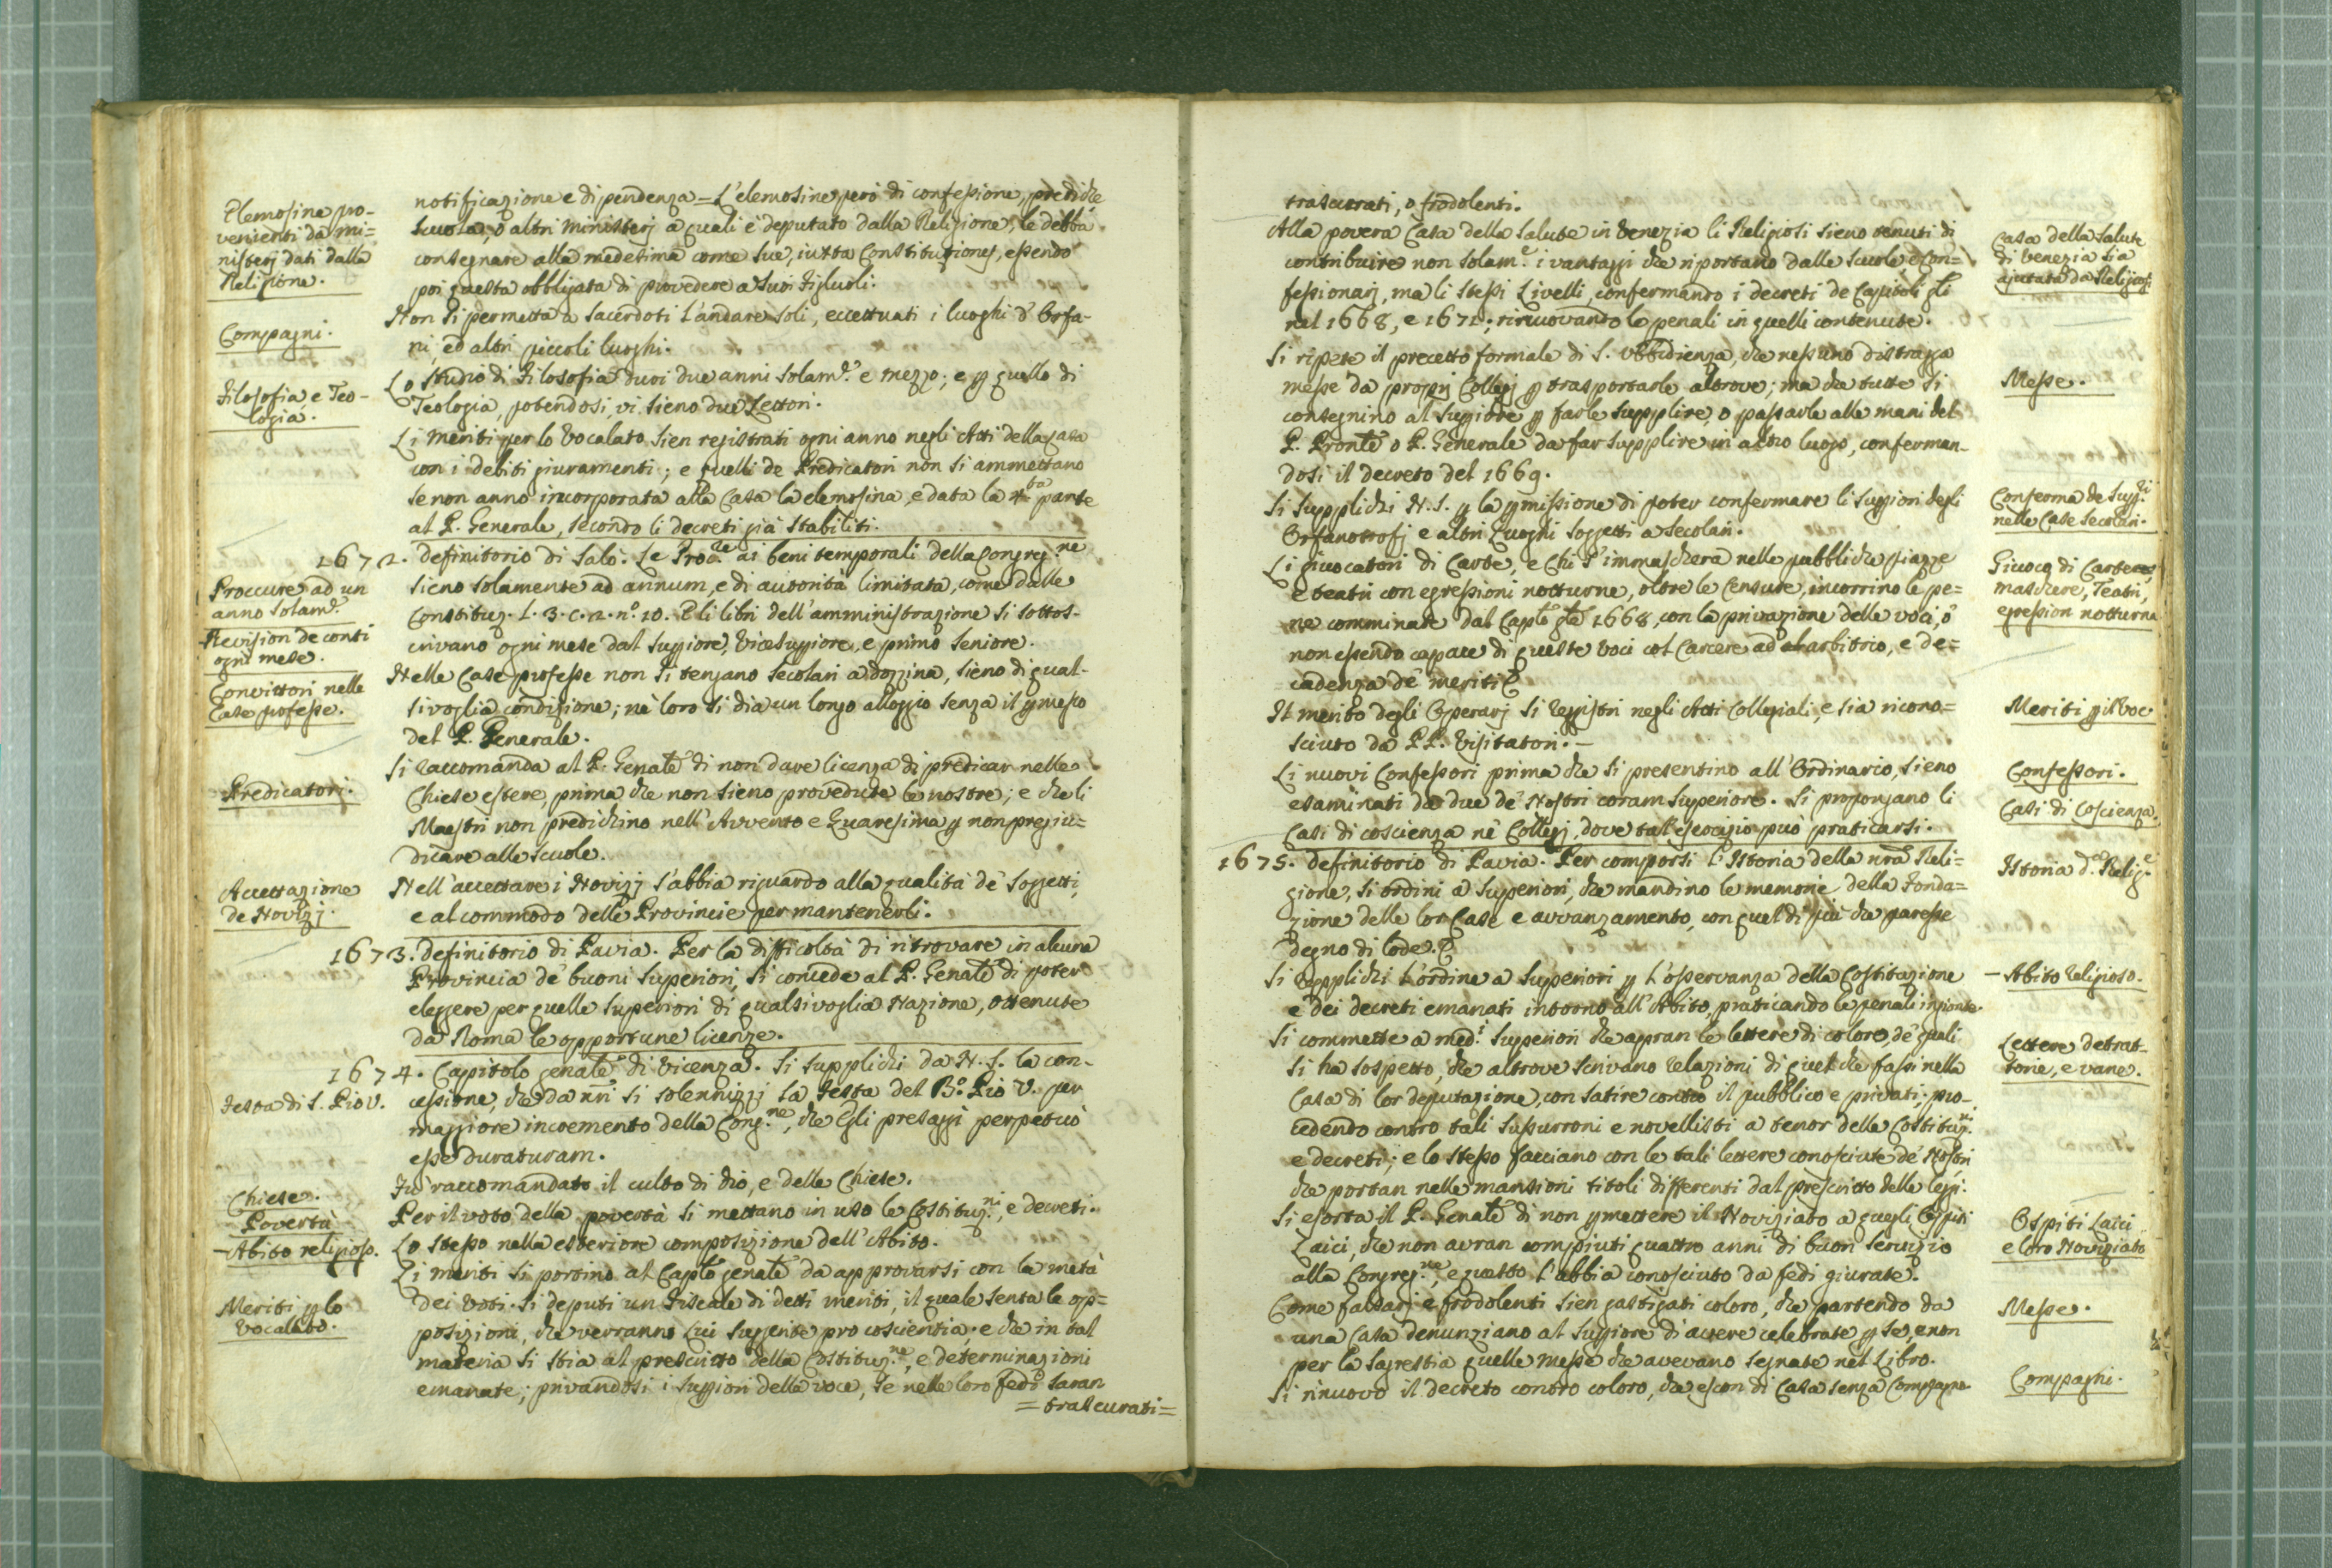 Elemosine pro-
venienti da mi=
nisterj dati dalla
Religione.
notificazione e dipendenza = L'elemosine però di confessione, prediche
scuola, o altri ministerj a quali è deputato dalla Religione, le debba
consegnare alla medesima come sue, iuxta Constitutiones, essendo
poi questa obbligata di provedere a suoi Figluoli.
Compagni.
Non si permetta a sacerdoti l'andare soli, eccettuati i luoghi d' Orfa-
ni, ed altri piccoli luoghi.
Filosofia e Teo-
logia.
Lo studio di Filosofia duri due anni solam.e e mezzo; e p quello di
Teologia, potendosi, vi sieno due Lettori.
Li meriti per lo Vocalato sien registrati ogni anno negli Atti della Casa
con i debiti giuramenti; e quelli de Predicatori non si ammettano
se non anno incorporata alla Casa la elemosina, e data la 4.ta parte
al P. Generale, secondo li decreti già stabiliti.
1672. Definitorio di Salò. Le Proc.re ai beni temporali della Congreg.ne
Proccure ad un
anno solam.e
sieno solamente ad annum, e di autorità limitata, come dalle
Constituz. L. 3. c. 2. n.o 10. E li libri dell'amministrazione si sottos-
Revision de conti
ogni mese.
crivano ogni mese dal Suppiore, Vicesuppiore, e primo Seniore.
Convittori nelle
Case professe.
Nelle Case professe non si tengano secolari a dozzina, sieno di qual-
sivoglia condizione; nè loro si dia un longo alloggio senza il pmesso
del P. Generale.
Predicatori.
Si raccomanda al P. Genãle di non dare licenza di predicar nelle
Chiese estere, prima che non sieno provedute le nostre; e che li
Maestri non predichino nell'Avvento e Quaresima p non pregiu=
dicare alle scuole.
Accettazione
de Novizj.
Nell'accettare i Novizj s'abbia riguardo alla qualità de' soggetti,
e al commodo delle Provincie per mantenerli.
1673. Definitorio di Pavia. Per la difficoltà di ritrovare in alcuna
Provincia de' buoni Superiori, si concede al P. Genãle di poter
eleggere per quelle Superiori di qualsivoglia Nazione, ottenute
da Roma le opportune licenze.
1674. Capitolo genãle di Vicenza. Si supplichi da N. S. la con-
Festa di S. Pio V.
cessione, che da nrĩ si solennizzi la Festa del B.o Pio V. per
maggiore incremento della Cong.ne, che Egli presagì perpetuò
esse duraturam.
Chiese.
Fu raccomandato il culto di Dio, e delle Chiese.
Povertà
Per il voto della povertà si mettano in uso le Costituz.ni, e decreti.
- Abito religioso.
Lo stesso nella esteriore composizione dell'Abito.
Li meriti si portino al Caplo genãle da approvarsi con la metà
Meriti p lo
Vocalato.
dei Voti. Si deputi un Fiscale di detti meriti, il quale senta le op=
posizioni, che verranno Lui suggerite pro coscientia: e che in tal
materia si stia al prescritto della Costituz.ne, e determinazioni
emanate; privandosi i Suppiori della voce, se nelle loro fedi saran
= trascurati =
trascurati, o frodolenti.
Alla povera Casa della Salute in Venezia li Religiosi sieno tenuti di
Casa della Salute
di Venezia sia
ajutata da Religiosi
contribuire non solam.e i vantaggi che riportano dalle scuole e Con=
fessionarj, ma li stessi Livelli, confermando i decreti de Capitoli gli
nel 1668, e 1671; rinnovando le penali in quelli contenute.
Messe.
Si ripete il precetto formale di S. Ubbidienza, che nessuno distragga
messe da proprj Collegj p trasportarle altrove; ma che tutte si
consegnino al Suppiore p farle supplire, o passarle alle mani del
P. Pronle o P. Generale da far supplire in altro luogo, conferman-
dosi il decreto del 1669.
Conferma de Supp.ri
nelle Case secolari.
Si supplichi N. S. p la pmissione di poter confermare li Suppiori degli
Orfanotrofj e altri Luoghi soggetti a secolari.
Giuoco di Carte,
maschere, Teatri,
egression notturna
Li giuocatori di Carte, e chi s'immascherà nelle pubbliche piazze
e teatri con egressioni notturne, oltre le Censure, incorrino le pe=
ne comminate dal Caplo gle 1668, con la privazione delle voci, o
non essendo capace di queste voci col Carcere ad arbitrio, e de=
cadenza de' meriti.
Meriti p il Voc
Il merito degli Operarj si registri negli Atti Collegiali, e sia ricono=
sciuto da PP. Visitatori.-
Confessori.
Li nuovi Confessori prima che si presentino all'Ordinario, sieno
esaminati da due de' Nostri coram Superiore. Si propongano li
Casi di Coscienza.
Casi di coscienza ne' Collegj, dove tall'esercizio può praticarsi.
1675. Definitorio di Pavia. Per comporsi l'Istoria della nrã Reli=
Istoria d.a Relig.e
gione, si ordini a Superiori, che mandino le memorie della Fonda=
zione delle lor Case e avvanzamento, con quel di più che paresse
degno di lode.
- Abito religioso.
Si repplichi l'ordine a Superiori p l'osservanza della Costituzione
e dei decreti emanati intorno all'Abito, praticando le penali ingionte.
Lettere detrat-
torie, e vane.
Si commette a med.i Superiori che apran le lettere di coloro, de' quali
si ha sospetto, che altrove scrivano relazioni di quel che fassi nella
Casa di lor deputazione, con satire contro il pubblico e privati; pro-
cedendo contro tali sussurroni e novellisti a tenor delle Costituz.ni
e decreti; e lo stesso facciano con le tali lettere conosciute de' Nostri
che portan nelle mansioni titoli differenti dal prescritto delle leggi.
Ospiti Laici
e loro Noviziato
Si esorta il P. Genãle di non pmettere il Noviziato a quegli Ospiti
Laici, che non avran compiuti quattro anni di buon servizio
alla Congreg.ne, e quello l'abbia conosciuto da fedi giurate.
Messe.
Come falsarj e frodolenti sien gastigati coloro, che partendo da
una Casa denunziano al Suppiore di avere celebrate p se, e non
per la Sagrestia quelle messe che avevano segnate nel Libro.
Compagni.
Si rinuovò il decreto contro coloro, che escon di Casa senza Compagno